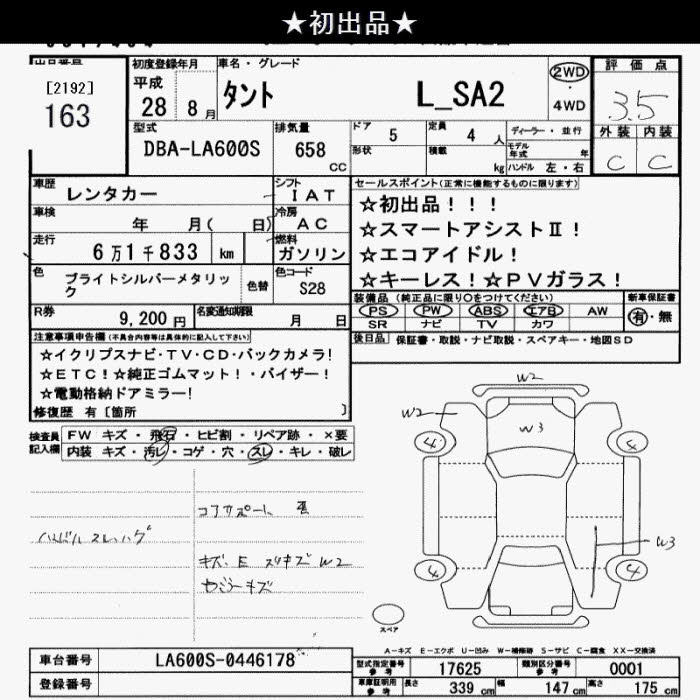 ★初出品★
出品番号
[2192]
163
初度登録年月
平成
28 8 月
車名・グレード
タント L_SA2
2WD
・
4WD
評価点
3.5
外装 内装
C C
型式
DBA-LA600S
排気量
658 CC
ドア 5
定員 4 人
ディーラー・並行
形状
積載 kg
モデル年式 年
ハンドル 左・右
車歴 レンタカー
シフト IAT
車検 年 月( 日)
冷房 AC
走行 6万1千833 km
燃料 ガソリン
色 ブライトシルバーメタリック
色替
色コード S28
R券 9,200 円
名変通知期限 月 日
セールスポイント(正常に機能するものに限ります)
☆初出品!!!
☆スマートアシストⅡ!
☆エコアイドル!
☆キーレス!☆PVガラス!
装備品 (純正品に限り○をつけてください)
新車保証書
PS PW ABS エアB AW
有・無
SR ナビ TV カワ
後日品 保証書・取説・ナビ取説・スペアキー・地図SD
注意事項申告欄(不具合内容等は具体的に記入して下さい)
☆イクリプスナビ・TV・CD・バックカメラ!
☆ETC!☆純正ゴムマット!・バイザー!
☆電動格納ドアミラー!
修復歴 有〔箇所 〕
検査員記入欄
FW キズ・飛石・ヒビ割・リペア跡・×要
内装 キズ・汚レ・コゲ・穴・スレ・キレ・破レ
コアサポート
ハンドルスレ
キズ、E スリキズ W2
W2
W2
W3
4
4
W3
4
4
スペア
A-キズ E-エクボ U-凹み W-補修跡 S-サビ C-腐食 XX-交換済
車台番号 LA600S-0446178
登録番号
型式指定番号参考 17625
類別区分番号参考 0001
車庫証明用参考 長さ 339 cm 幅 147 cm 高さ 175 cm